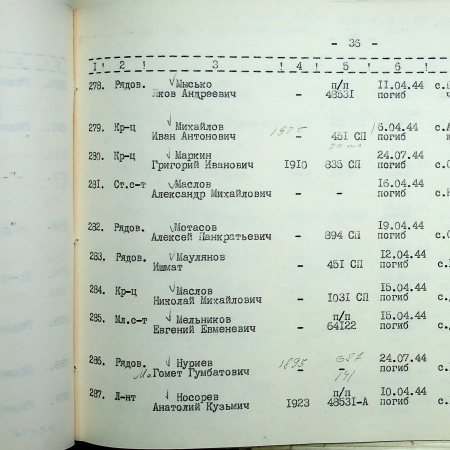 - 36 -
1 ! 2 ! 3 ! 4 ! 5 ! 6 !
278. Рядов. Мысько п/п 11.04.44 с.
Яков Андреевич - 48531 погиб
279. Кр-ц Михайлов 16.04.44 с.
Иван Антонович - 451 СП погиб
280. Кр-ц Маркин 24.07.44
Григорий Иванович 1910 835 СП погиб с.
281. Ст.с-т Маслов 16.04.44 с.
Александр Михайлович - - погиб
282. Рядов. Мотасов 19.04.44
Алексей Панкратьевич - 894 СП погиб с.
283. Рядов. Маулянов 12.04.44
Ишмат - 451 СП погиб с.
284. Кр-ц Маслов 15.04.44
Николай Михайлович - 1031 СП погиб с.
285. Мл.с-т Мельников п/п 15.04.44
Евгений Евменевич - 64122 погиб с.
286. Рядов. Нуриев 1895 687 24.07.44
Ма Гомет Гумбатович - - погиб с.
287. Л-нт Носорев п/п 10.04.44
Анатолий Кузьмич 1923 48531-А погиб с.